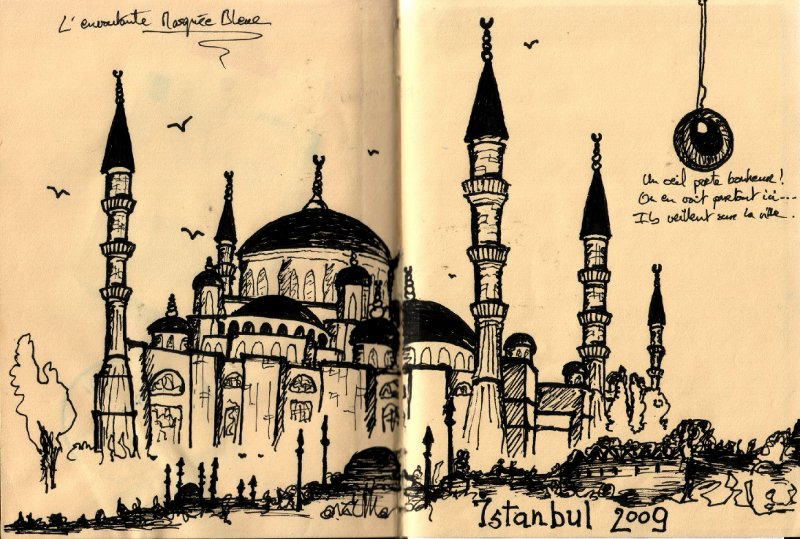 L'envoutante Mosquée Bleue
Un œil porte bonheur !
On en voit partout ici....
Ils veillent sur la ville.
Istanbul 2009